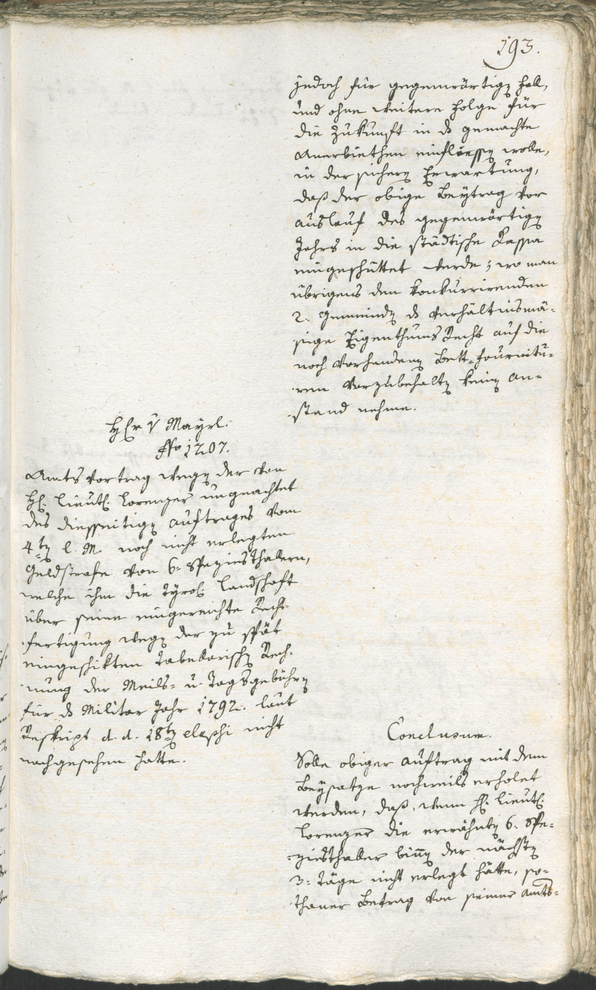 193.
jedoch für gegenwärtigen Fall,
und ohne weitere Folge für
die Zukunft in das gemachte
Anerbiethen einfließen wolle,
in der sichern Erwartung,
daß der obige Beytrag vor
Auslauf des gegenwärtigen
Jahrs in die städtische Kassa
eingeschüttet werde; wo man
übrigens den konkurrirenden
2. Gemeinden das verhältnismä-
ßige Eigenthums Recht auf die
noch vorhandenen Bett-Fournitu-
ren vorzubehalten keinen An-
stand nehme.
Hr. v Mayrl.
No 1207.
Amts Vortrag wegen der von
H. Lieut. Lorenzer ungeachtet
des diesseitigen Auftrages vom
4ten l. M. noch nicht erlegten
Geldstrafe von 6. Speziesthalern,
welche ihm die Tyrol. Landschaft
über seine eingereichte Recht-
fertigung wegen der zu spät
eingeschikten tabellarischen Rech-
nung der Meils- u. Tagsgebühren
für das Militar Jahr 1792. laut
Reskript d. d. 18ten elapsi nicht
nachgesehen hatte.
Conclusum.
Solle obiger Auftrag mit dem
Beysatze nochmals erholet
werden, daß, wenn H. Lieut.
Lorenzer die erwähnten 6. Spe-
ziesthaler binnen der nächsten
3. Täge nicht erlegt hätte, so-
thaner Betrag von seiner Amts-